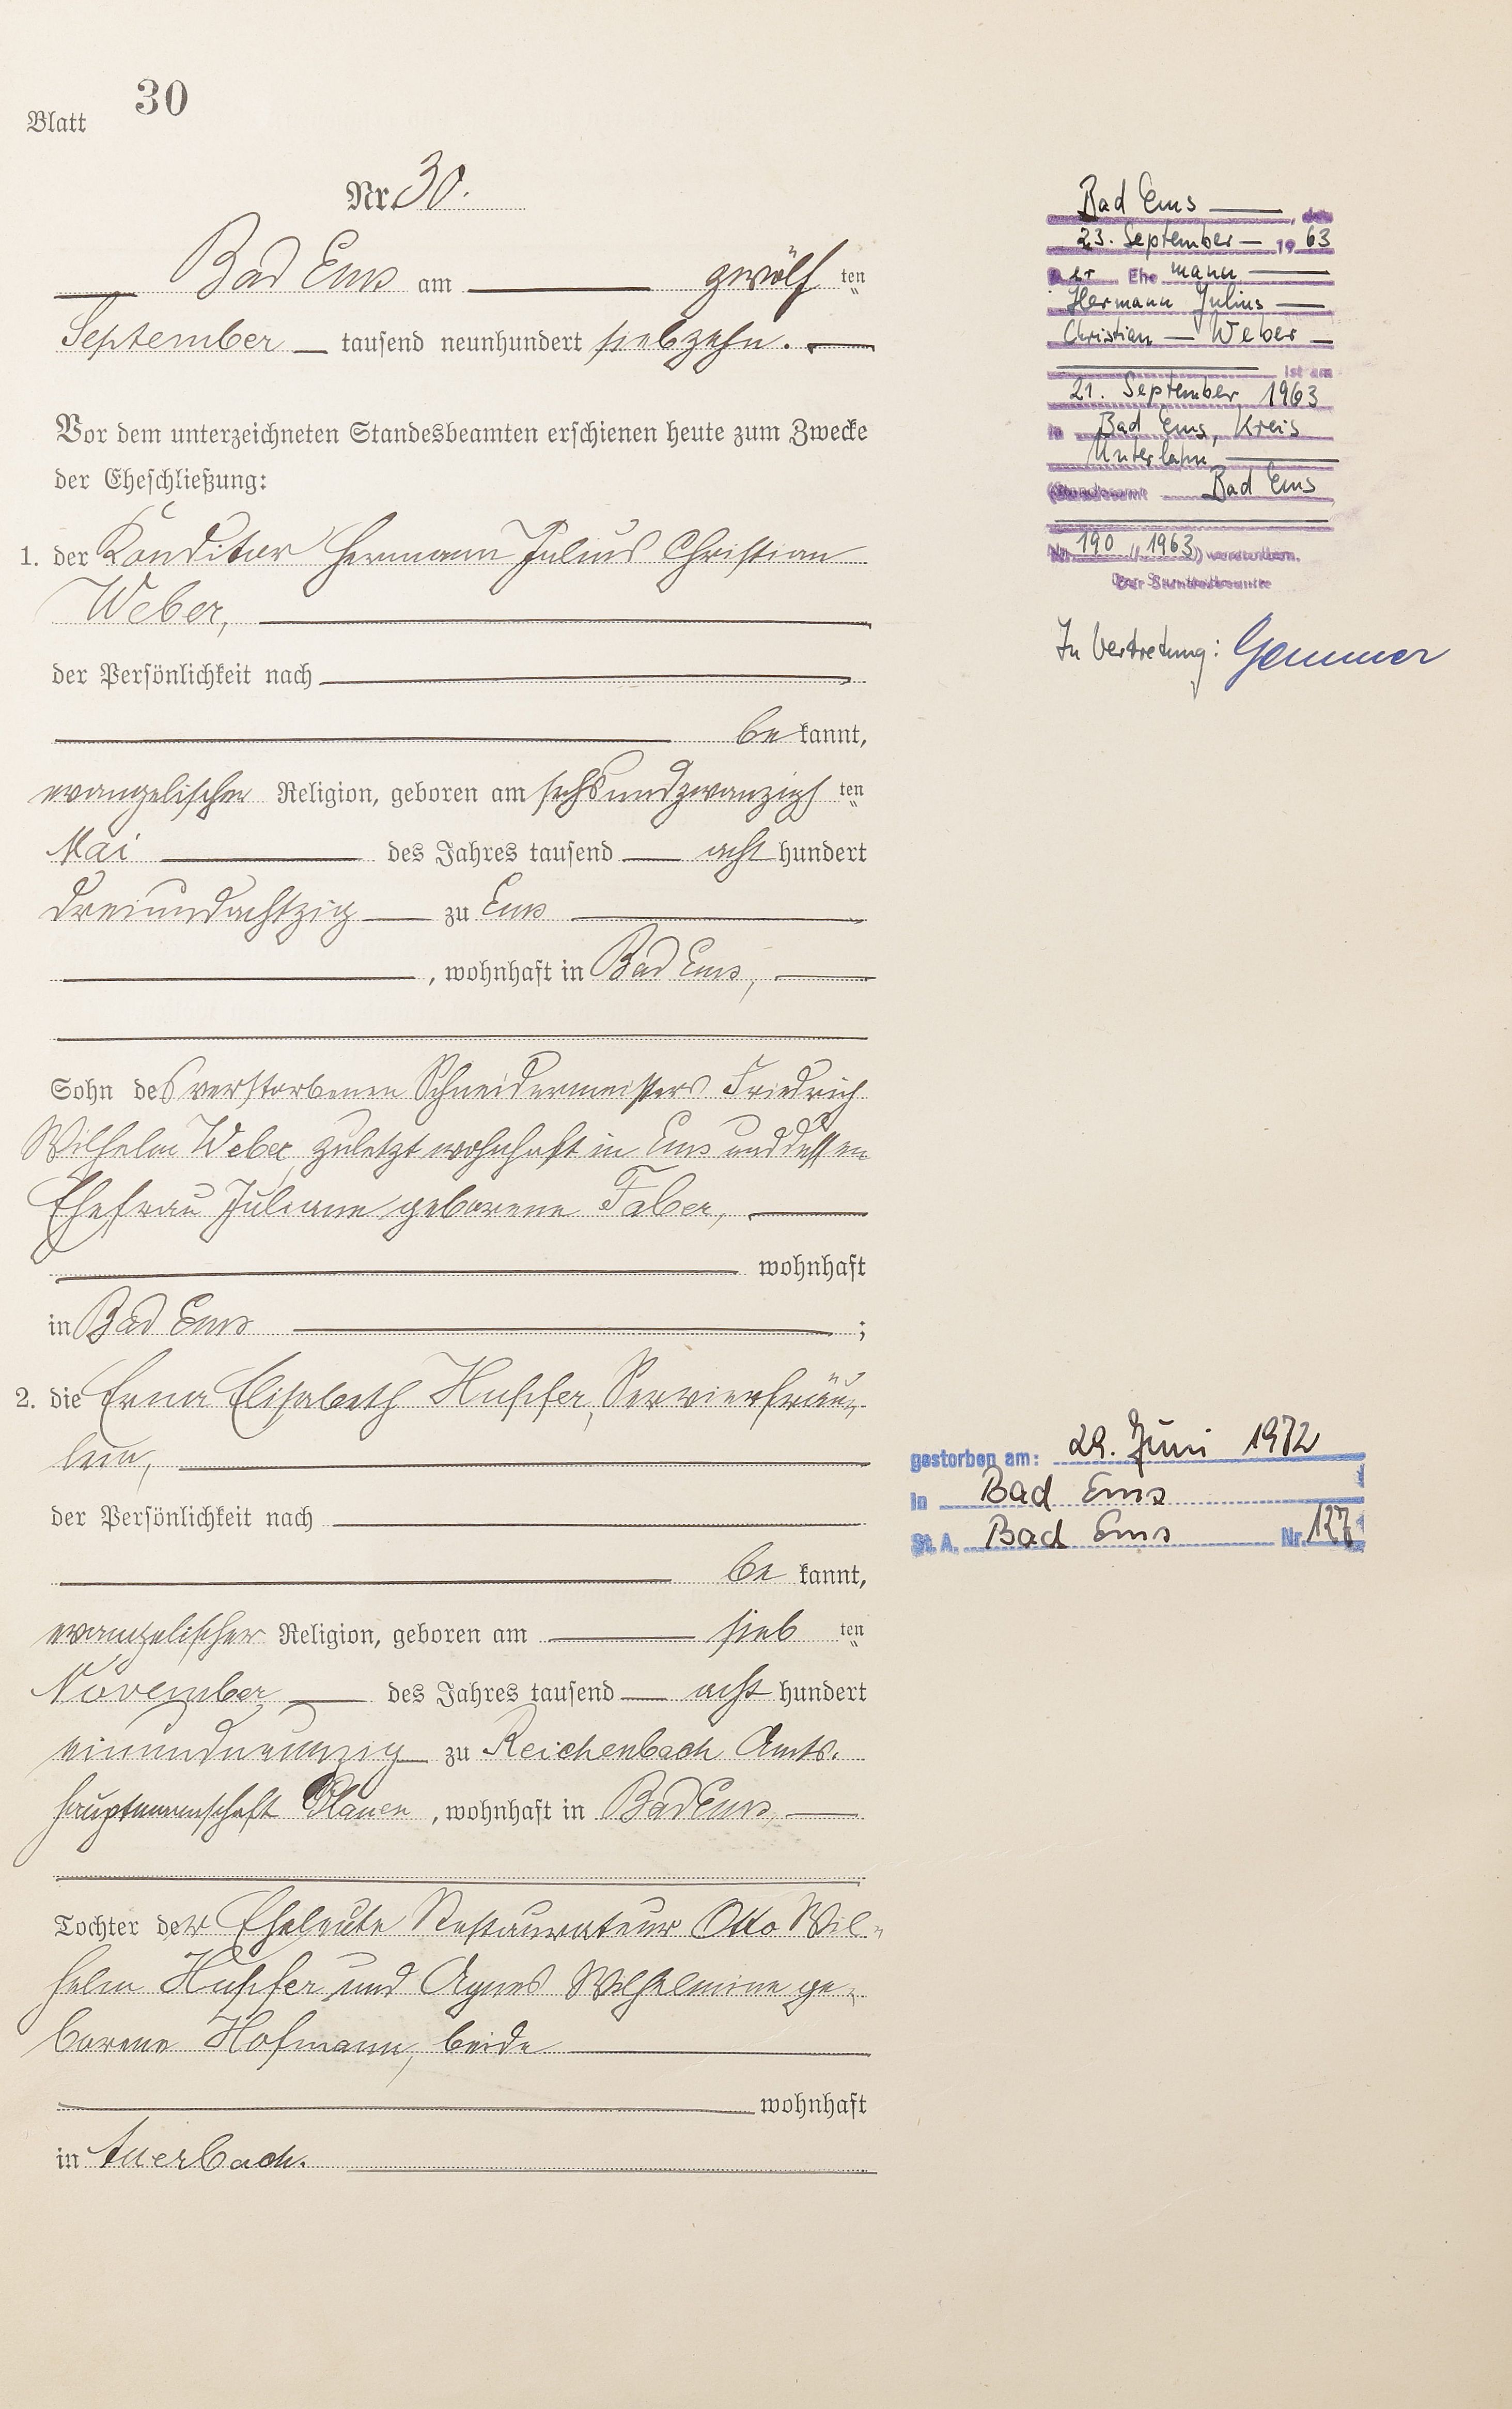 Blatt 30
Nr. 30.
Bad Ems am zwölf ten
September tausend neunhundert siebzehn.
Vor dem unterzeichneten Standesbeamten erschienen heute zum Zwecke
der Eheschließung:
1. der Konditor Hermann Julius Christian
Weber,
der Persönlichkeit nach
be kannt,
evangelischer Religion, geboren am sechsundzwanzigs ten
Mai des Jahres tausend acht hundert
dreiundachtzig zu Ems
, wohnhaft in Bad Ems,
Sohn des verstorbenen Schneidermeisters Friedrich
Wilhelm Weber, zuletzt wohnhaft in Ems und dessen
Ehefrau Juliane geborene Faber,
wohnhaft
in Bad Ems ;
2. die Erna Elisabeth Hupfer, Servierfräu-
lein,
der Persönlichkeit nach
be kannt,
evangelischer Religion, geboren am sieb ten
November des Jahres tausend acht hundert
einundneunzig zu Reichenbach Amts-
hauptmannschaft Plauen, wohnhaft in Bad Ems,
Tochter der Eheleute Restaurateur Otto Wil-
helm Hupfer und Agnes Wilhelmine ge-
borene Hofmann, beide
wohnhaft
in Auerbach.
Bad Ems, den
23. September 1963
Der Ehemann
Hermann Julius
Christian Weber
ist am
21. September 1963
in Bad Ems, Kreis
Unterlahn
(Standesamt Bad Ems
Nr. 190 / 1963) verstorben.
Der Standesbeamte
In Vertretung: Gemmer
gestorben am: 29. Juni 1972
in Bad Ems
St. A. Bad Ems Nr. 127